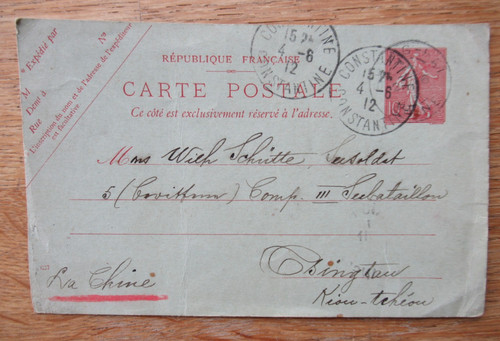 Expédié par
M
Demt à
Rue
N°
L'inscription du nom et de l'adresse de l'expéditeur
est facultative
CONSTANTINE
15 2
4 -6
12
CONSTANTINE
CONSTANTINE
15 2
4 -6
12
CONSTANTINE
RÉPUBLIQUE FRANÇAISE
CARTE POSTALE
Ce côté est exclusivement réservé à l'adresse.
Mons Wilh Schütte, Seesoldat
5 Comp. III Seebataillon
Tsingtau
La Chine
Kiou-tchéou